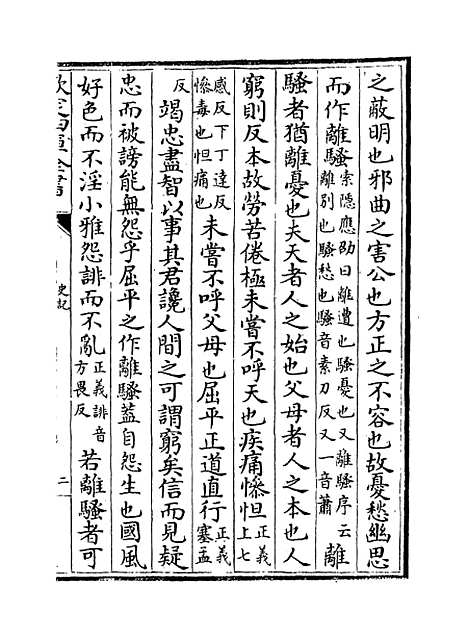 之蔽明也邪曲之害公也方正之不容也故憂愁幽思
而作離騷索隱應劭曰離遭也騷憂也又離騷序云離別也騷愁也騷音素刀反又一音蕭離
騷者猶離憂也夫天者人之始也父母者人之本也人
窮則反本故勞苦倦極未嘗不呼天也疾痛慘怛正義上七
感反下丁達反慘毒也怛痛也未嘗不呼父母也屈平正道直行正義塞孟
反竭忠盡智以事其君讒人間之可謂窮矣信而見疑
忠而被謗能無怨乎屈平之作離騷葢自怨生也國風
好色而不淫小雅怨誹而不亂正義誹音方畏反若離騷者可
欽定四庫全書
史記
二